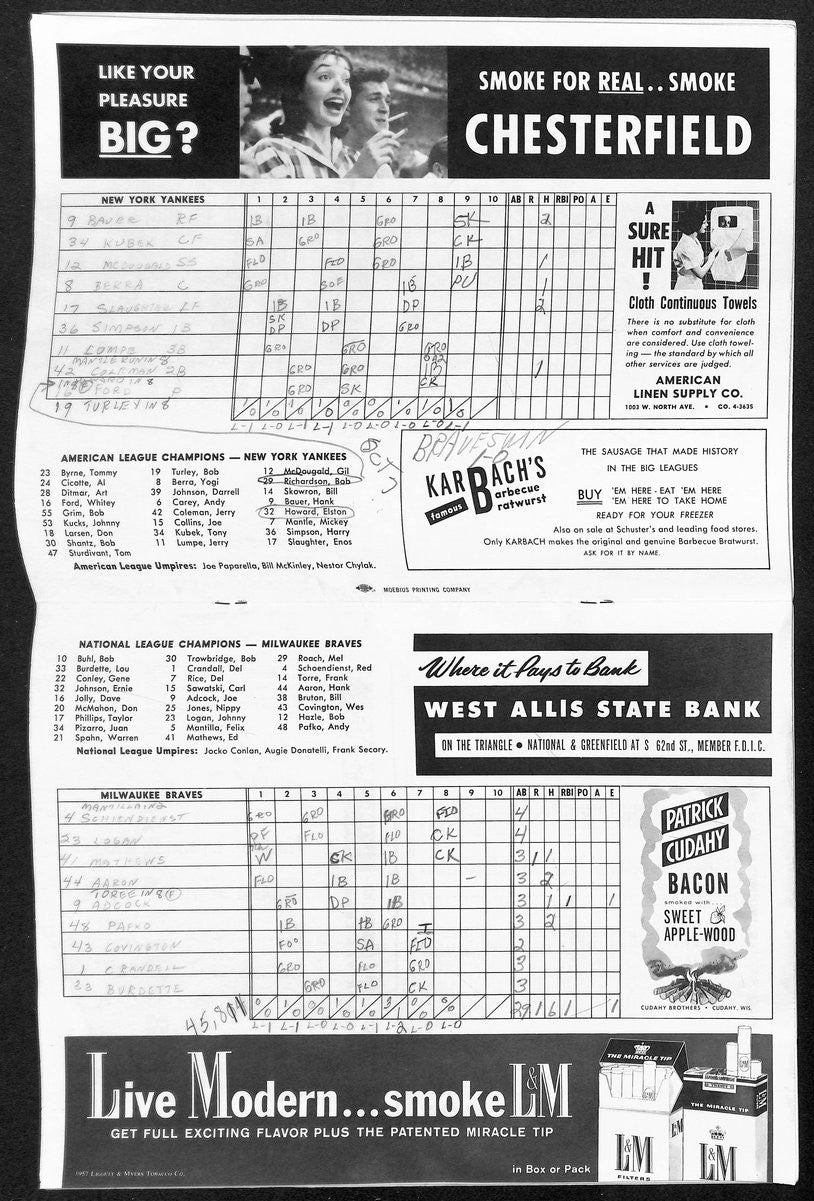 LIKE YOUR
PLEASURE
BIG?
SMOKE FOR REAL.. SMOKE
CHESTERFIELD
NEW YORK YANKEES 1 2 3 4 5 6 7 8 9 10 AB R H RBI PO A E
9 BAUER RF 1B 1B GRO SK 2
34 KUBEK CF SA GRO GRO CK
12 McDOUGALD SS FLO FLO GRO 1B 1
8 BERRA C GRO 1B PU 1
17 SLAUGHTER LF 1B 1B DP 2
36 SIMPSON 1B SK DP DP GRO
11 3B GRO GRO GRO
MANTLE RUN IN 8
42 COLEMAN 2B GRO GRO 1B 1
FORD P GRO SK CK
19 TURLEY IN 8
L-1 L-0 L-1 L-1 L-0 L-0 L-0 L-0 L-1
OCT 7
BRAVES WIN
1-0
A
SURE
HIT
!
Cloth Continuous Towels
There is no substitute for cloth
when comfort and convenience
are considered. Use cloth towel-
ing — the standard by which all
other services are judged.
AMERICAN
LINEN SUPPLY CO.
1003 W. NORTH AVE. • CO. 4-3635
AMERICAN LEAGUE CHAMPIONS — NEW YORK YANKEES
23 Byrne, Tommy 19 Turley, Bob 12 McDougald, Gil
24 Cicotte, Al 8 Berra, Yogi 29 Richardson, Bob
28 Ditmar, Art 39 Johnson, Darrell 14 Skowron, Bill
16 Ford, Whitey 6 Carey, Andy 9 Bauer, Hank
55 Grim, Bob 42 Coleman, Jerry 32 Howard, Elston
53 Kucks, Johnny 15 Collins, Joe 7 Mantle, Mickey
18 Larsen, Don 34 Kubek, Tony 36 Simpson, Harry
30 Shantz, Bob 11 Lumpe, Jerry 17 Slaughter, Enos
47 Sturdivant, Tom
American League Umpires: Joe Paparella, Bill McKinley, Nestor Chylak.
famous
KARBACH'S
Barbecue
Bratwurst
THE SAUSAGE THAT MADE HISTORY
IN THE BIG LEAGUES
BUY 'EM HERE - EAT 'EM HERE
'EM HERE TO TAKE HOME
READY FOR YOUR FREEZER
Also on sale at Schuster's and leading food stores.
Only KARBACH makes the original and genuine Barbecue Bratwurst.
ASK FOR IT BY NAME.
MOEBIUS PRINTING COMPANY
NATIONAL LEAGUE CHAMPIONS — MILWAUKEE BRAVES
10 Buhl, Bob 30 Trowbridge, Bob 29 Roach, Mel
33 Burdette, Lou 1 Crandall, Del 4 Schoendienst, Red
22 Conley, Gene 7 Rice, Del 14 Torre, Frank
32 Johnson, Ernie 15 Sawatski, Carl 44 Aaron, Hank
16 Jolly, Dave 9 Adcock, Joe 38 Bruton, Bill
20 McMahon, Don 25 Jones, Nippy 43 Covington, Wes
17 Phillips, Taylor 23 Logan, Johnny 12 Hazle, Bob
34 Pizarro, Juan 5 Mantilla, Felix 48 Pafko, Andy
21 Spahn, Warren 41 Mathews, Ed
National League Umpires: Jocko Conlan, Augie Donatelli, Frank Secory.
Where it Pays to Bank
WEST ALLIS STATE BANK
ON THE TRIANGLE • NATIONAL & GREENFIELD AT S 62nd ST., MEMBER F.D.I.C.
MILWAUKEE BRAVES 1 2 3 4 5 6 7 8 9 10 AB R H RBI PO A E
MANTILLA IN 2
4 SCHIENDIENST GRO GRO GRO FLO 4
23 LOGAN FLO FLO CK 4
41 MATHEWS W CK 1B CK 3 1 1
44 AARON FLO 1B 1B - 3 2
TOREE IN 8
9 ADCOCK GRO DP 1B 3 1 1 1
48 PAFKO 1B 1B GRO 3 2
43 COVINGTON SA FLO 2
1 CRANDELL GRO FLO GRO 3
33 BURDETTE GRO FLO CK 3
29 1 6 1 1
L-1 L-1 L-0 L-0 L-1 L-2 L-0 L-0
PATRICK
CUDAHY
BACON
smoked with..
SWEET
APPLE-WOOD
CUDAHY BROTHERS • CUDAHY, WIS.
Live Modern...smoke L&M
GET FULL EXCITING FLAVOR PLUS THE PATENTED MIRACLE TIP
1957 LIGGETT & MYERS TOBACCO CO.
in Box or Pack
THE MIRACLE TIP
THE MIRACLE TIP
L&M
FILTERS
L&M